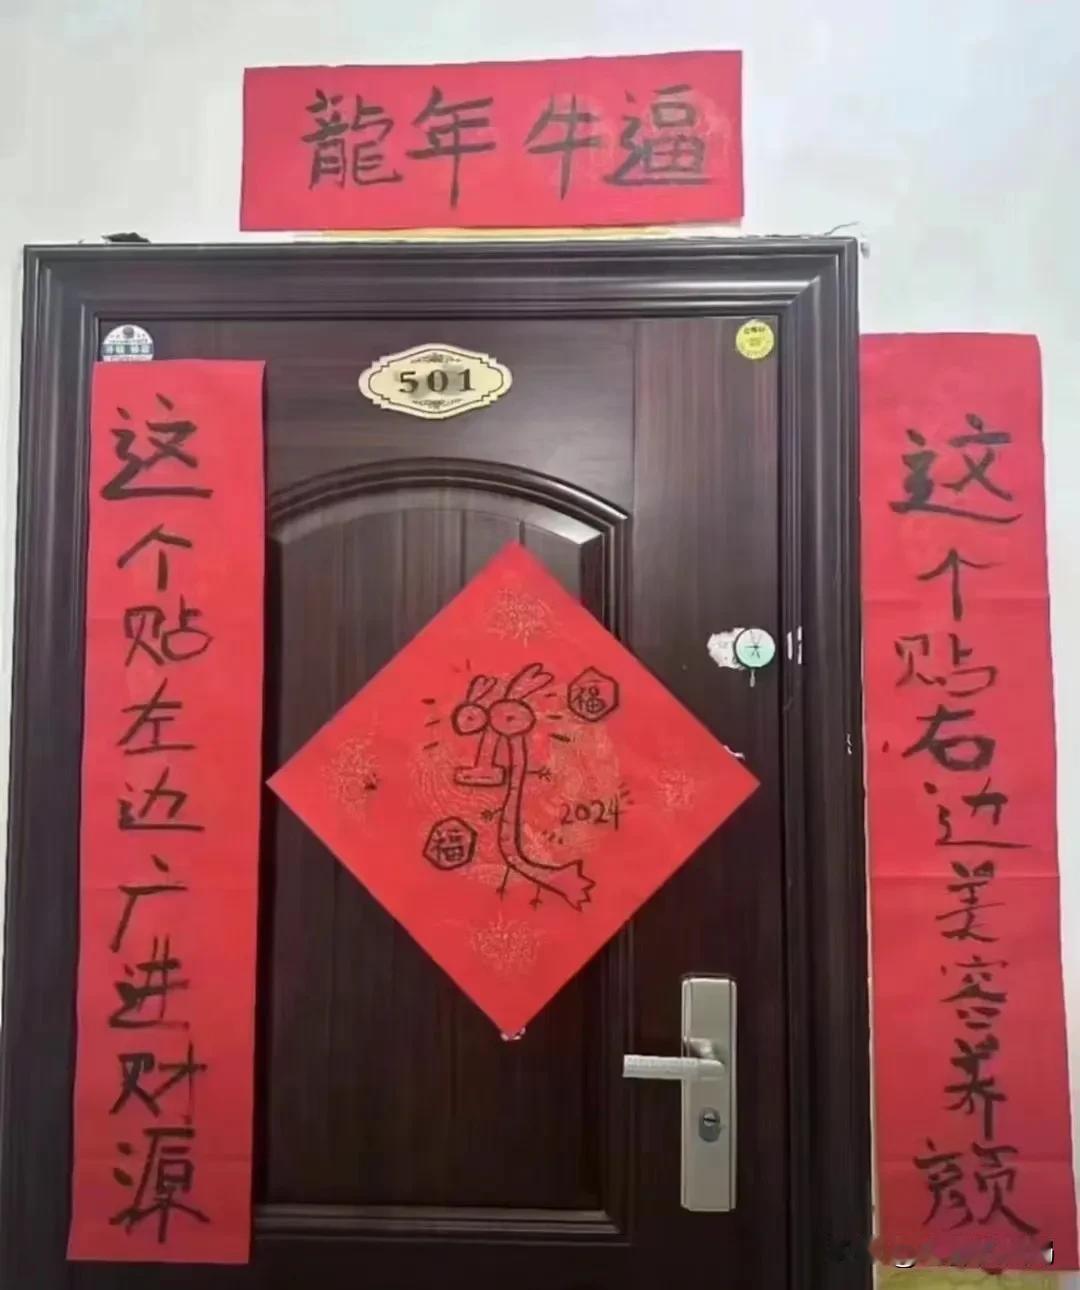 龍年牛逼
501
这个贴左边广进财源
这个贴右边美容养颜
福
福
2024